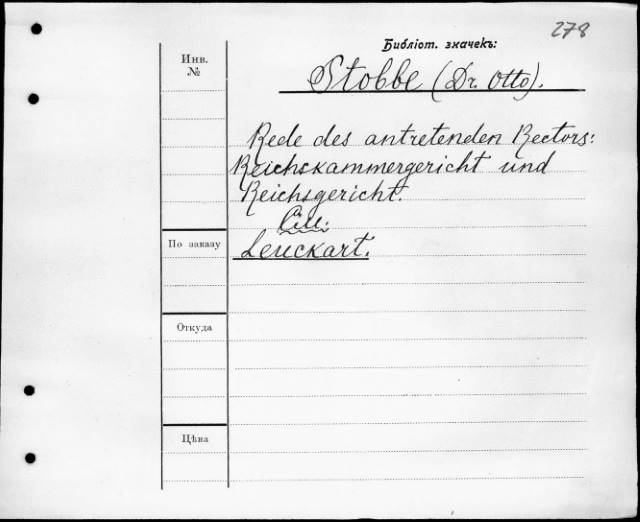 278
Библіот. значекъ:
Инв.
№
Stobbe (Dr. Otto).
Rede des antretenden Rectors:
Reichskammergericht und
Reichsgericht.
См.
По заказу
Leuckart.
Откуда
Цѣна